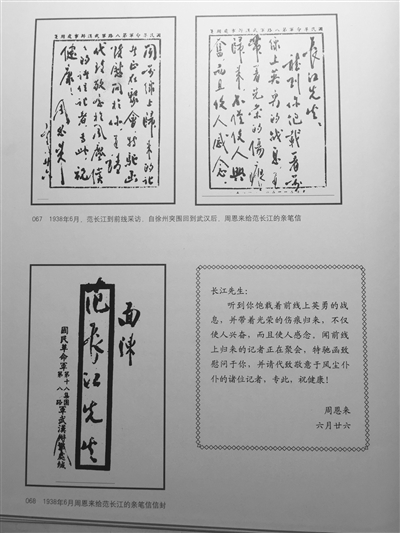 長江先生:
聽到你飽載着前
線上英勇的战息,並
帶着光荣的傷痕
歸来,不僅使人興
奮,而且使人感念。
聞前線上歸来的記
者正在聚會,特馳函
致慰問於你,並請
代致敬意於風塵僕
僕的诸位記者,專此,祝
健康!
周恩来
六月廿六
067 1938年6月,范长江到前线采访,自徐州突围回到武汉后,周恩来给范长江的亲笔信
面陳
范長江先生
國民革命軍第十八集團
第八路
軍武漢辦事處緘
068 1938年6月周恩来给范长江的亲笔信信封
长江先生:
听到你饱载着前线上英勇的战
息,并带着光荣的伤痕归来,不仅
使人兴奋,而且使人感念。闻前线
上归来的记者正在聚会,特驰函致
慰问于你,并请代致敬意于风尘仆
仆的诸位记者,专此,祝健康!
周恩来
六月廿六